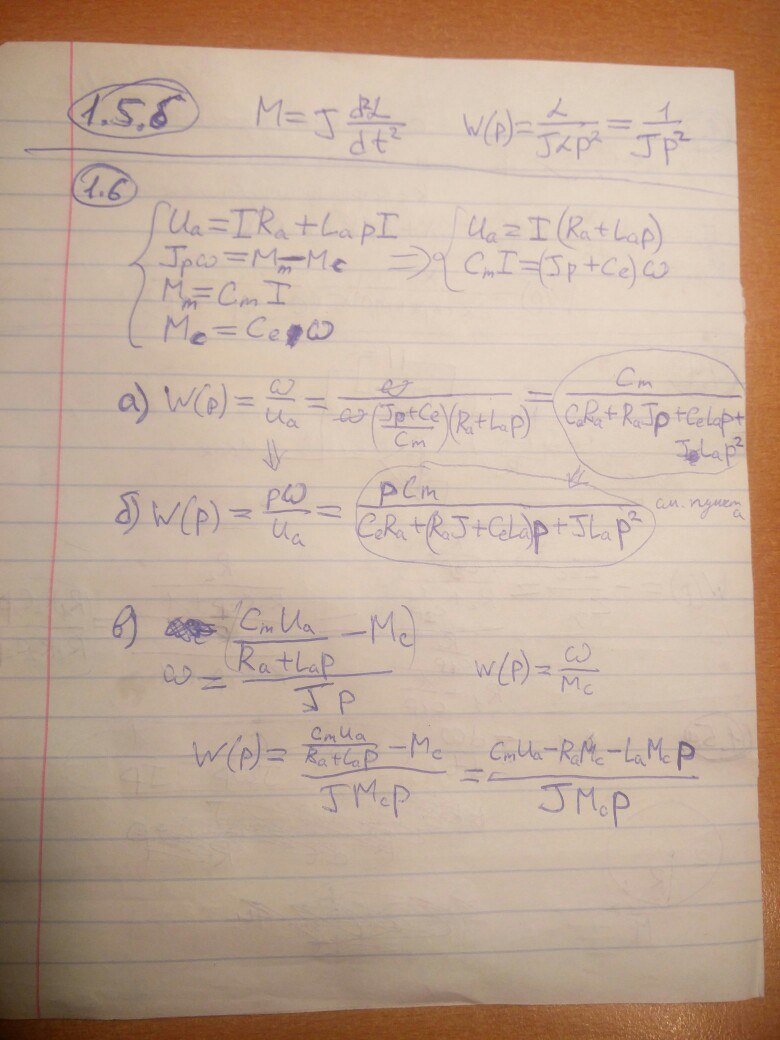 1.5.б M = J dα/dt² W(p) = α/Jαp² = 1/Jp²
1.6
{ Uₐ = IRₐ + LₐpI => { Uₐ = I(Rₐ + Lₐp)
Jpω = Mₘ − Mc CₘI = (Jp + Cₑ)ω
Mₘ = CₘI
Mc = Cₑω
а) W(p) = ω/Uₐ = ω/(ω((Jp+Cₑ)/Cₘ)(Rₐ+Lₐp)) = Cₘ/(CₑRₐ + RₐJp + CₑLₐp + JLₐp²)
б) W(p) = pω/Uₐ = pCₘ/(CₑRₐ + (RₐJ + CₑLₐ)p + JLₐp²) см. пункт а
в) ω = (CₘUₐ/(Rₐ + Lₐp) − Mc)/Jp W(p) = ω/Mc
W(p) = (CₘUₐ/(Rₐ+Lₐp) − Mc)/JMcp = (CₘUₐ − RₐMc − LₐMcp)/JMcp